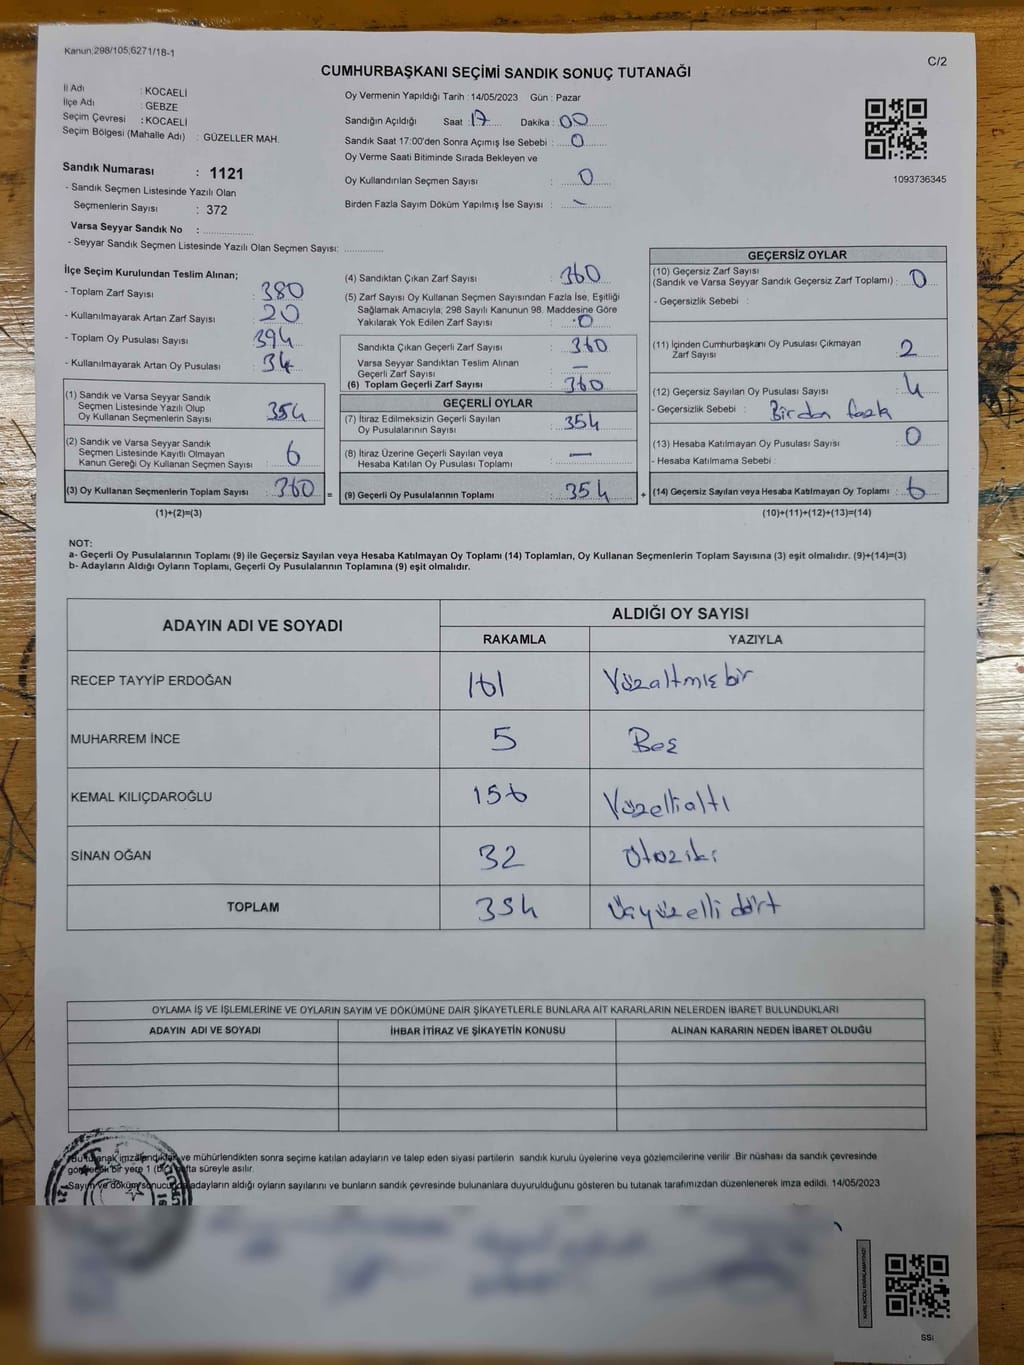 Kanun;298/105;6271/18-1
C/2
CUMHURBAŞKANI SEÇİMİ SANDIK SONUÇ TUTANAĞI
İl Adı : KOCAELİ
İlçe Adı : GEBZE
Seçim Çevresi : KOCAELİ
Seçim Bölgesi (Mahalle Adı) : GÜZELLER MAH.
Sandık Numarası : 1121
- Sandık Seçmen Listesinde Yazılı Olan
Seçmenlerin Sayısı : 372
Varsa Seyyar Sandık No :
- Seyyar Sandık Seçmen Listesinde Yazılı Olan Seçmen Sayısı:
Oy Vermenin Yapıldığı Tarih : 14/05/2023 Gün : Pazar
Sandığın Açıldığı Saat : 17 Dakika : 00
Sandık Saat 17:00'den Sonra Açımış İse Sebebi : 0
Oy Verme Saati Bitiminde Sırada Bekleyen ve
Oy Kullandırılan Seçmen Sayısı : 0
Birden Fazla Sayım Döküm Yapılmış İse Sayısı : -
1093736345
İlçe Seçim Kurulundan Teslim Alınan;
- Toplam Zarf Sayısı : 380
- Kullanılmayarak Artan Zarf Sayısı : 20
- Toplam Oy Pusulası Sayısı : 394
- Kullanılmayarak Artan Oy Pusulası : 34
(1) Sandık ve Varsa Seyyar Sandık
Seçmen Listesinde Yazılı Olup
Oy Kullanan Seçmenlerin Sayısı : 354
(2) Sandık ve Varsa Seyyar Sandık
Seçmen Listesinde Kayıtlı Olmayan
Kanun Gereği Oy Kullanan Seçmen Sayısı : 6
(3) Oy Kullanan Seçmenlerin Toplam Sayısı : 360
(1)+(2)=(3)
(4) Sandıktan Çıkan Zarf Sayısı : 360
(5) Zarf Sayısı Oy Kullanan Seçmen Sayısından Fazla İse, Eşitliği
Sağlamak Amacıyla; 298 Sayılı Kanunun 98. Maddesine Göre
Yakılarak Yok Edilen Zarf Sayısı : 0
Sandıkta Çıkan Geçerli Zarf Sayısı : 360
Varsa Seyyar Sandıktan Teslim Alınan
Geçerli Zarf Sayısı : -
(6) Toplam Geçerli Zarf Sayısı : 360
GEÇERLİ OYLAR
(7) İtiraz Edilmeksizin Geçerli Sayılan
Oy Pusulalarının Sayısı : 354
(8) İtiraz Üzerine Geçerli Sayılan veya
Hesaba Katılan Oy Pusulası Toplamı : -
= (9) Geçerli Oy Pusulalarının Toplamı : 354 +
GEÇERSİZ OYLAR
(10) Geçersiz Zarf Sayısı
(Sandık ve Varsa Seyyar Sandık Geçersiz Zarf Toplamı) : 0
- Geçersizlik Sebebi :
(11) İçinden Cumhurbaşkanı Oy Pusulası Çıkmayan
Zarf Sayısı : 2
(12) Geçersiz Sayılan Oy Pusulası Sayısı : 4
- Geçersizlik Sebebi : Birden fazla
(13) Hesaba Katılmayan Oy Pusulası Sayısı : 0
- Hesaba Katılmama Sebebi :
(14) Geçersiz Sayılan veya Hesaba Katılmayan Oy Toplamı : 6
(10)+(11)+(12)+(13)=(14)
NOT:
a- Geçerli Oy Pusulalarının Toplamı (9) ile Geçersiz Sayılan veya Hesaba Katılmayan Oy Toplamı (14) Toplamları, Oy Kullanan Seçmenlerin Toplam Sayısına (3) eşit olmalıdır. (9)+(14)=(3)
b- Adayların Aldığı Oyların Toplamı, Geçerli Oy Pusulalarının Toplamına (9) eşit olmalıdır.
ADAYIN ADI VE SOYADI
ALDIĞI OY SAYISI
RAKAMLA YAZIYLA
RECEP TAYYİP ERDOĞAN 161 Yüzaltmışbir
MUHARREM İNCE 5 Beş
KEMAL KILIÇDAROĞLU 156 Yüzellialtı
SİNAN OĞAN 32 Otuziki
TOPLAM 354 Üçyüzelli dört
OYLAMA İŞ VE İŞLEMLERİNE VE OYLARIN SAYIM VE DÖKÜMÜNE DAİR ŞİKAYETLERLE BUNLARA AİT KARARLARIN NELERDEN İBARET BULUNDUKLARI
ADAYIN ADI VE SOYADI İHBAR İTİRAZ VE ŞİKAYETİN KONUSU ALINAN KARARIN NEDEN İBARET OLDUĞU
ve mühürlendikten sonra seçime katılan adayların ve talep eden siyasi partilerin sandık kurulu üyelerine veya gözlemcilerine verilir. Bir nüshası da sandık çevresinde
bir yere 1 süreyle asılır.
adayların aldığı oyların sayılarını ve bunların sandık çevresinde bulunanlara duyurulduğunu gösteren bu tutanak tarafımızdan düzenlenerek imza edildi. 14/05/2023
SSi